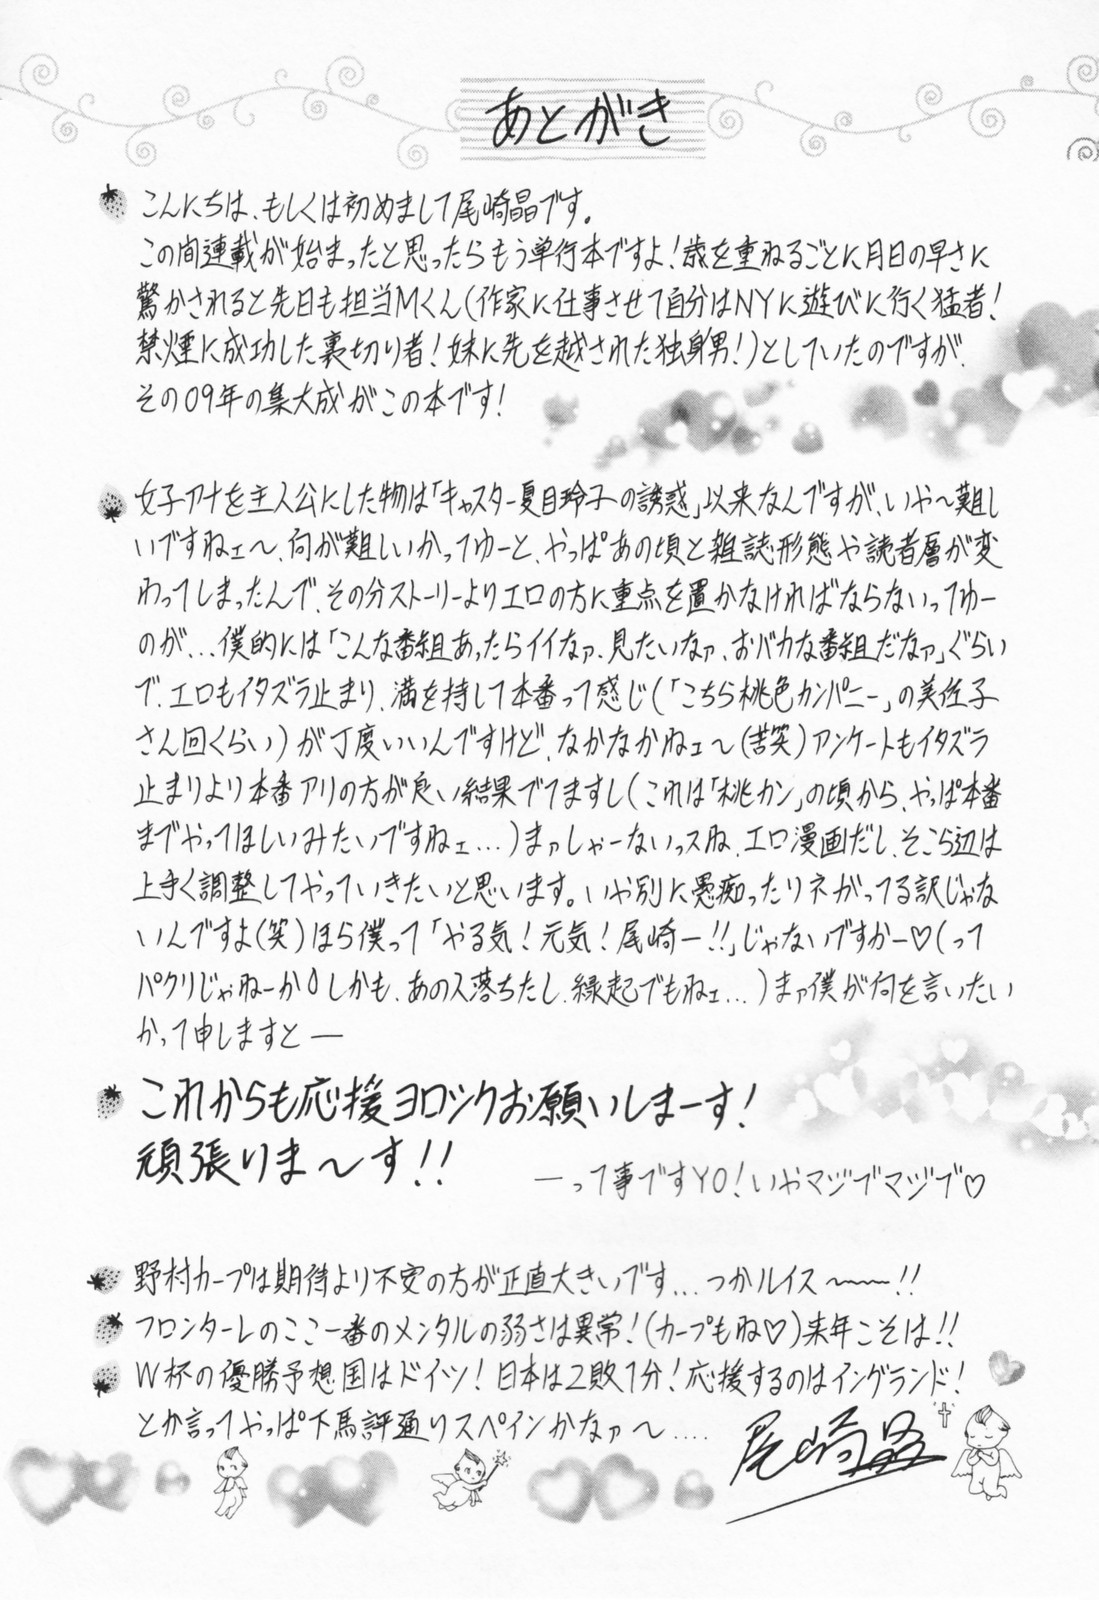 あとがき
こんにちは、もしくは初めまして尾崎晶です。
この間連載が始まったと思ったらもう単行本ですよ!歳を重ねるごとに月日の早さに
驚かされると先日も担当Mくん(作家に仕事させて自分はNYに遊びに行く猛者!
禁煙に成功した裏切り者!妹に先を越された独身男!)としていたのですが、
その09年の集大成がこの本です!
女子アナを主人公にした物は「キャスター夏目玲子の誘惑」以来なんですが、いや〜難し
いですねェ〜、何が難しいかってゆーと、やっぱあの頃と雑誌形態や読者層が変
わってしまったんで、その分ストーリーよりエロの方に重点を置かなければならないってゆー
のが...僕的には「こんな番組あったらイイなァ、見たいなァ、おバカな番組だなァ」ぐらい
で、エロもイタズラ止まり、満を持して本番って感じ(「こちら桃色カンパニー」の美佐子
さん回くらい)が丁度いいんですけど、なかなかねェ〜(苦笑)アンケートもイタズラ
止まりより本番アリの方が良い結果でてますし(これは「桃カン」の頃から、やっぱ本番
までやってほしいみたいですねェ...)まァしゃーないっスね、エロ漫画だし、そこら辺は
上手く調整してやっていきたいと思います。いや別に愚痴ったりネガってる訳じゃな
いんですよ(笑)ほら僕って「やる気!元気!尾崎ー!!」じゃないですかー♡(って
パクリじゃねーか しかも、あの人落ちたし、縁起でもねェ...)まァ僕が何を言いたい
かって申しますと—
これからも応援ヨロシクお願いしまーす!
頑張りま〜す!!
—って事ですYO!いやマジでマジで♡
野村カープは期待より不安の方が正直大きいです...つかルイス〜〜!!
フロンターレのここ一番のメンタルの弱さは異常!(カープもね♡)来年こそは!!
W杯の優勝予想国はドイツ!日本は2敗1分!応援するのはイングランド!
とか言ってやっぱ下馬評通りスペインかなァ〜....
尾崎晶